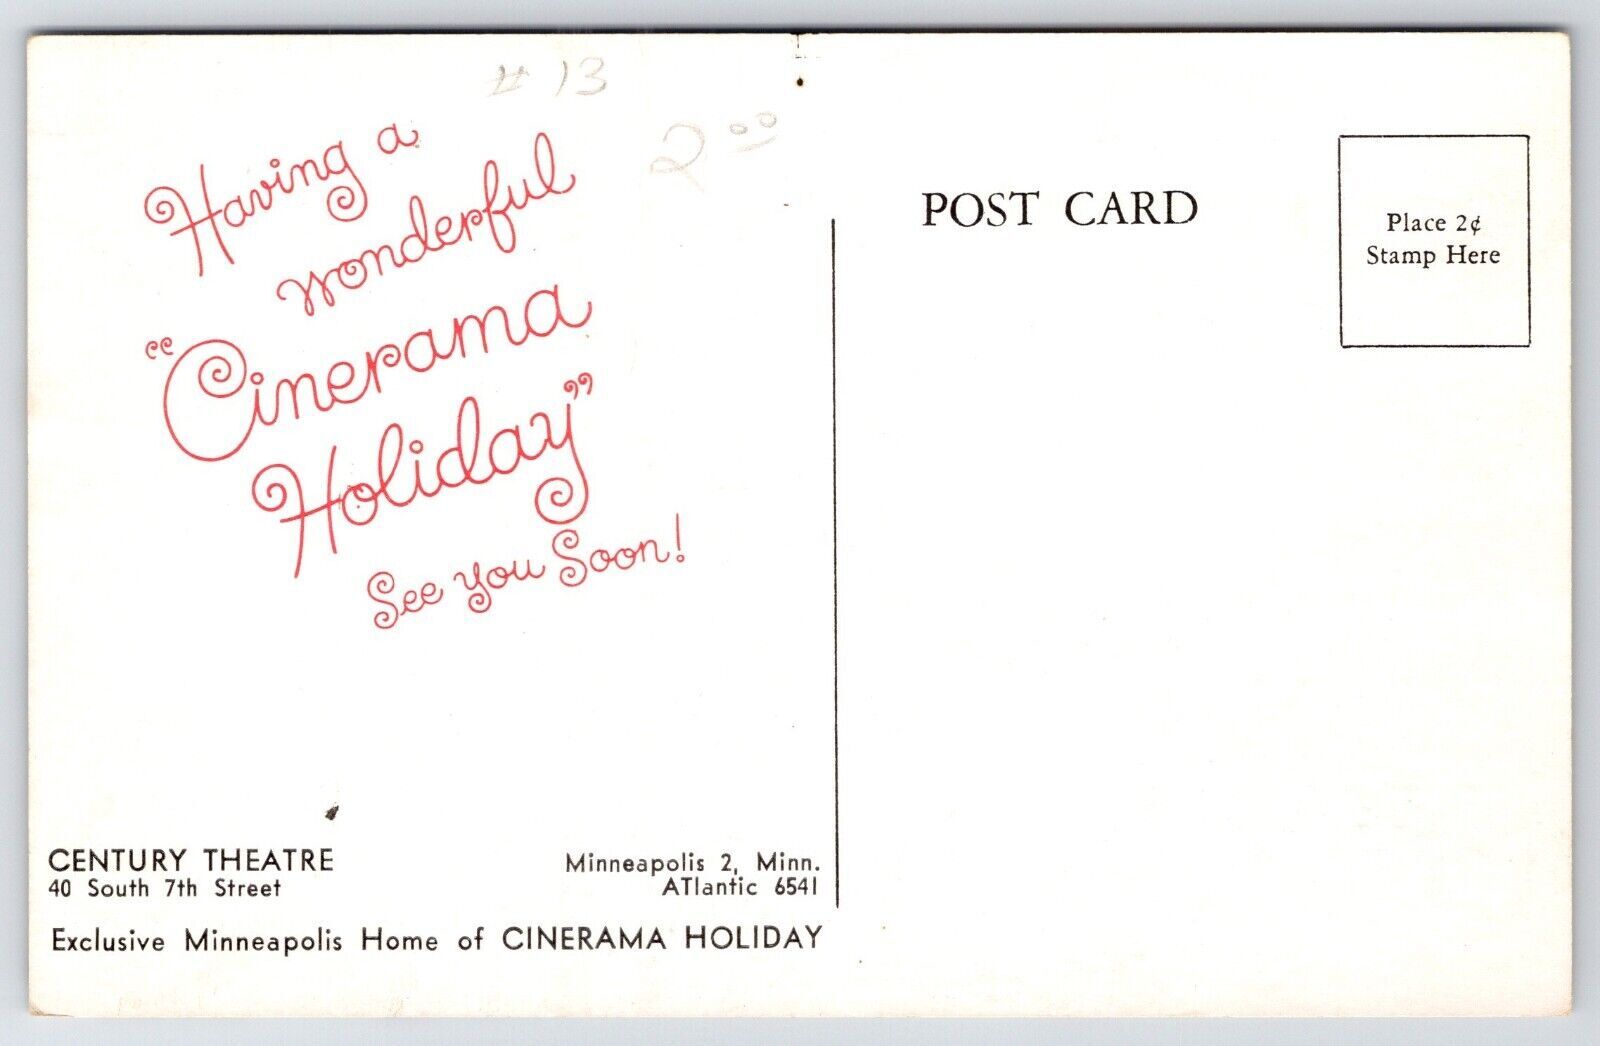 # 13
2.00
Having a
wonderful
"Cinerama
Holiday"
See you Soon!
POST CARD
Place 2¢
Stamp Here
CENTURY THEATRE
40 South 7th Street
Minneapolis 2, Minn.
ATlantic 6541
Exclusive Minneapolis Home of CINERAMA HOLIDAY